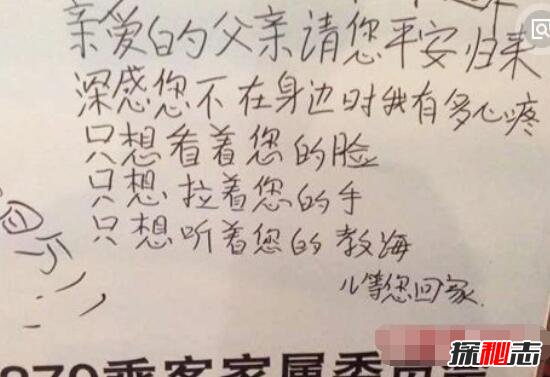 亲爱的父亲请您平安归来
深感您不在身边时我有多心疼
只想看着您的脸
只想拉着您的手
只想听着您的教海
儿等您回家.
370乘客家属委员会
探秘志